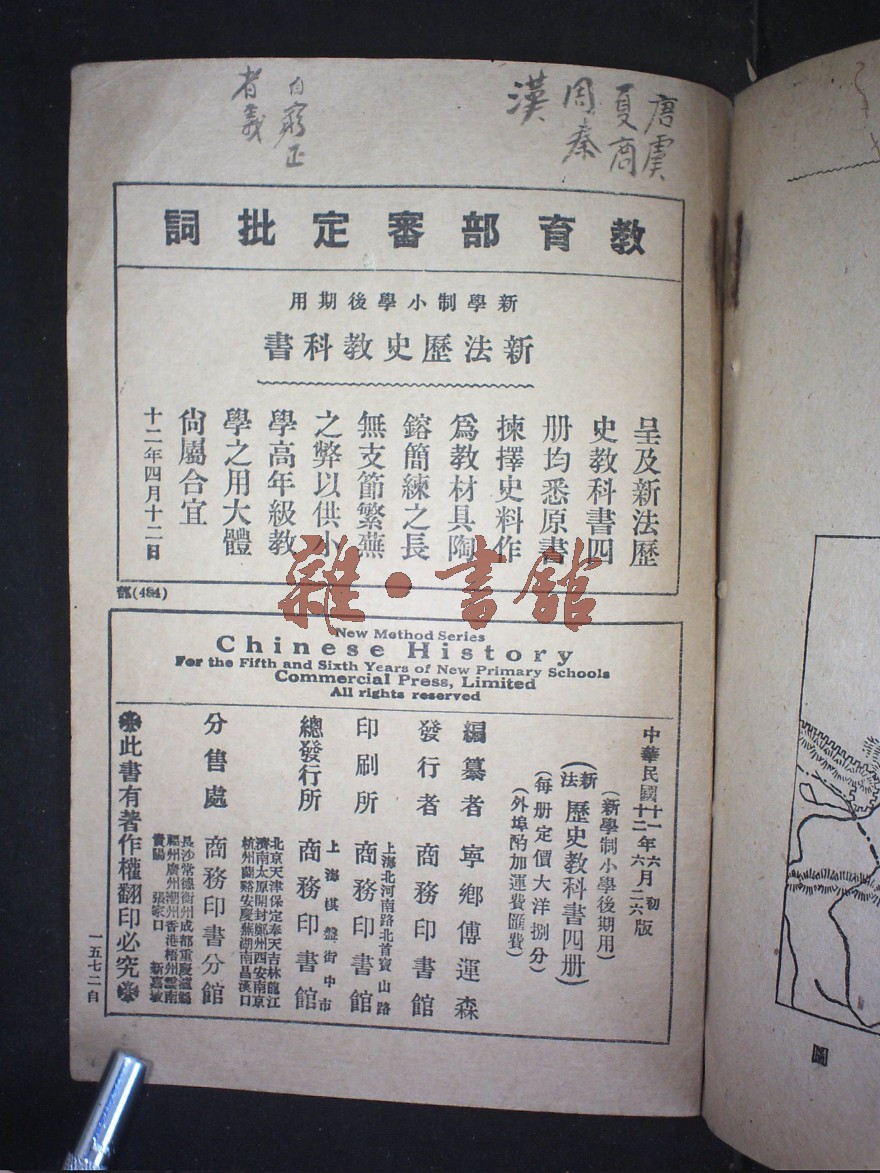 唐虞
夏商
周秦
漢
自窮正
者義
教育部審定批詞
新學制小學後期用
新法歷史教科書
呈及新法歷
史教科書四
册均悉原書
揀擇史料作
爲教材具陶
鎔簡練之長
無支節繁蕪
之弊以供小
學高年級教
學之用大體
尙屬合宜
十二年四月十二日
部(484)
雜·書館
New Method Series
Chinese History
For the Fifth and Sixth Years of New Primary Schools
Commercial Press, Limited
All rights reserved
中華民國十一年六月初版
十二年六月二六版
(新學制小學後期用)
(新法)歷史教科書四册
(每册定價大洋捌分)
(外埠酌加運費匯費)
編纂者 寧鄉傅運森
發行者 商務印書館
上海北河南路北首寶山路
印刷所 商務印書館
上海棋盤街中市
總發行所 商務印書館
北京天津保定奉天吉林龍江
濟南太原開封鄭州西安南京
杭州蘭谿安慶蕪湖南昌漢口
分售處 商務印書分館
長沙常德衡州成都重慶瀘縣
福州廣州潮州香港梧州雲南
貴陽 張家口 新嘉坡
此書有著作權翻印必究
一五七二自
圖